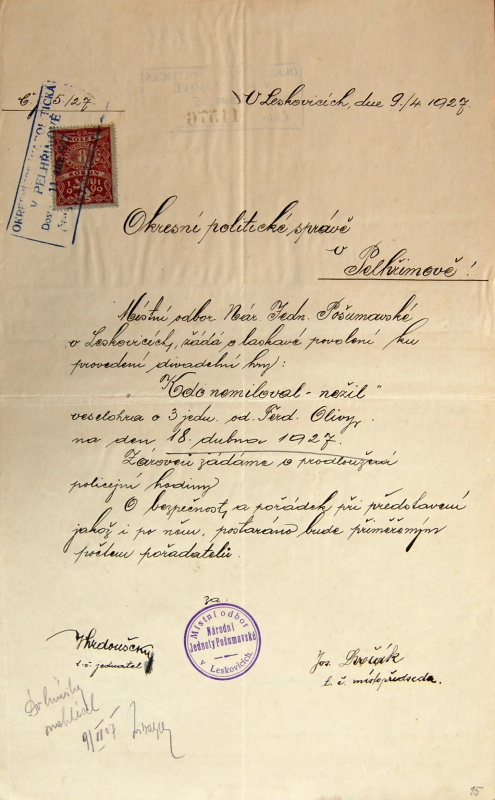 Č. 5/27.
V Leskovicích, dne 9./4 1927.
OKRESNÍ POLITICKÁ
V PELHŘIMOVĚ
KOLEK
8
KORUN
Okresní politické správě
v
Pelhřimově!
Místní odbor Nár. Jedn. Pošumavské
v Leskovicích, žádá o laskavé povolení ku
provedení divadelní hry:
"Kdo nemiloval - nežil"
veselohra o 3 jedn. od Ferd. Olivy,
na den 18. dubna 1927.
Zároveň žádáme o prodloužení
policejní hodiny
O bezpečnost a pořádek při představení
jakož i po něm, postaráno bude přiměřeným
počtem pořadatelů.
za
Místní odbor
Národní
Jednoty Pošumavské
v Leskovicích.
t. č. jednatel
Jos. Dvořák
t. č. místopředseda.
15